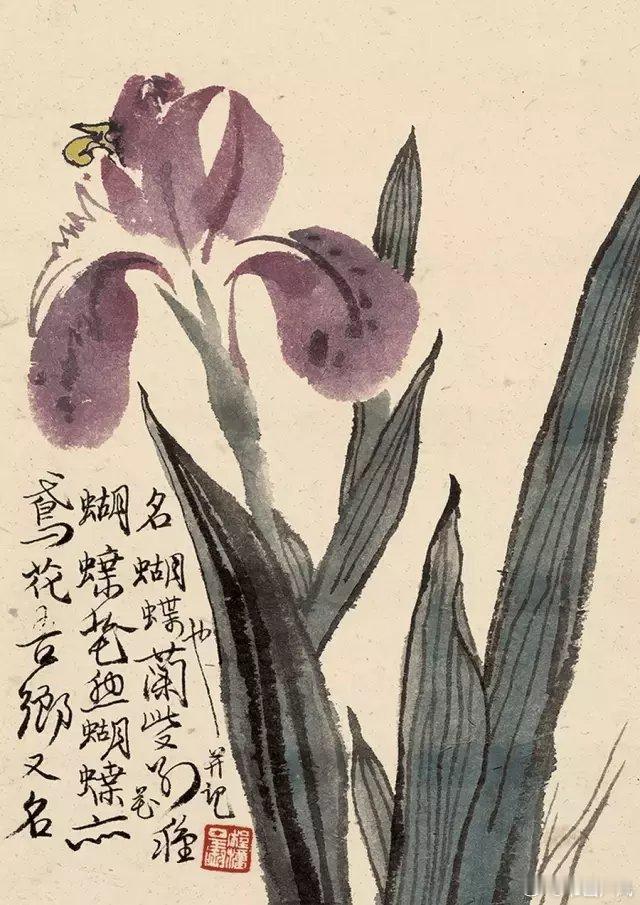 鳶花吾鄉又名
蝴蝶花蝴蝶花亦
名蝴蝶蘭此又種也
并記